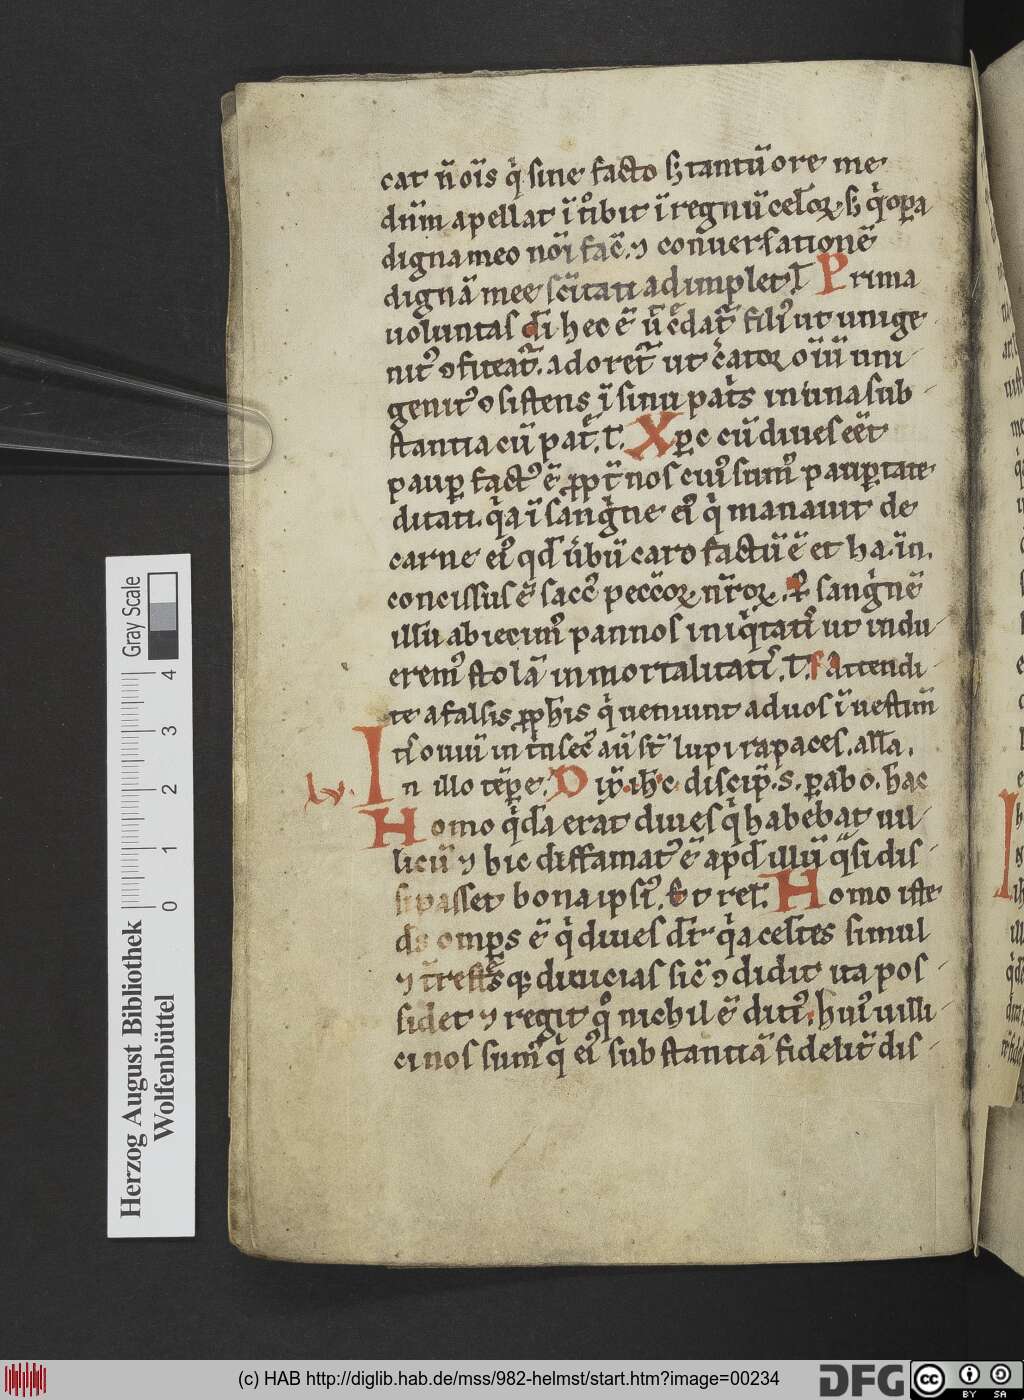 cat n̄ oı̄s q̇ sine facto ꜱ̵ tantū ore me
dn̄m apellat ı̄ t̊ibit ı̄ regnū celoꝝ ꜱ̵ q̇ oꝑa
digna meo noı̄ fac̄. ⁊ conversationē
dignā mee sc̄itati adimplet. ꝉ Prima
uoluntas di hec ē
nit᷒ ꝯfiteat᷑. adoret᷑ ut c̄atoꝝ oı̄ū uni
genit᷒ ꝯsistens ı̄ sinu patis in una sub
stantia cū pat̄. ꝉ. Xp̄c cū diues eēt
paup̲ fact᷒ ē ꝓpt̄ nos cui᷒ sum᷒ paup̲tate
ditati. q̇a ı̄ sang̍ne ei᷒ q̍ manauit de
carne ei᷒ qd̄ u̍bū caro factū ē et ha. ı̄n.
concissus ē sacc᷒ pecc̄oꝝ nr̄oꝝ. ⁊ sang̍nē
illū abiecim᷒ pannos iniq̍tati᷒ ut indu
erem᷒ stolā inmortalitati᷒. ꝉ. attendi
te a falsis ꝓph̄is q̍ ueniunt ad uos ı̄ uestim̄
ti᷒ ouiū int̍nsec᷒ aū st̄ lupi rapaces. alła.
lv. In illo tēp̲e. Dix̄. ih̄c discip̄. s. p̲abo. hac
Homo q̍dā erat diues q̍ habebat uil
licū ⁊ hic diffamat᷒ ē apd̄ illū q̄si dis
sipasset bona ipsi᷒. Et rel̄. Homo iste
ds omp̄s ē q̍ diues dr̄ q̍a celestes simul
⁊ t̄rest̄sꝗ diuicias sic̄ ꝯdidit ita pos
sidet ⁊ regit q̊ nichil ē diti᷒. hui᷒ uilli
ci nos sum᷒ q̍ ei᷒ substantiā fidelit̄ dis
Herzog August Bibliothek
Wolfenbüttel
Gray Scale
0 1 2 3 4
(c) HAB http://diglib.hab.de/mss/982-helmst/start.htm?image=00234
DFG
cc BY SA